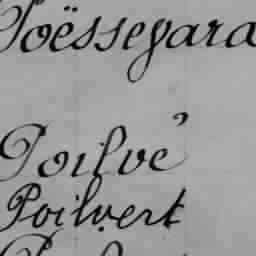 Poëssegara
Poilvé
Poilvert